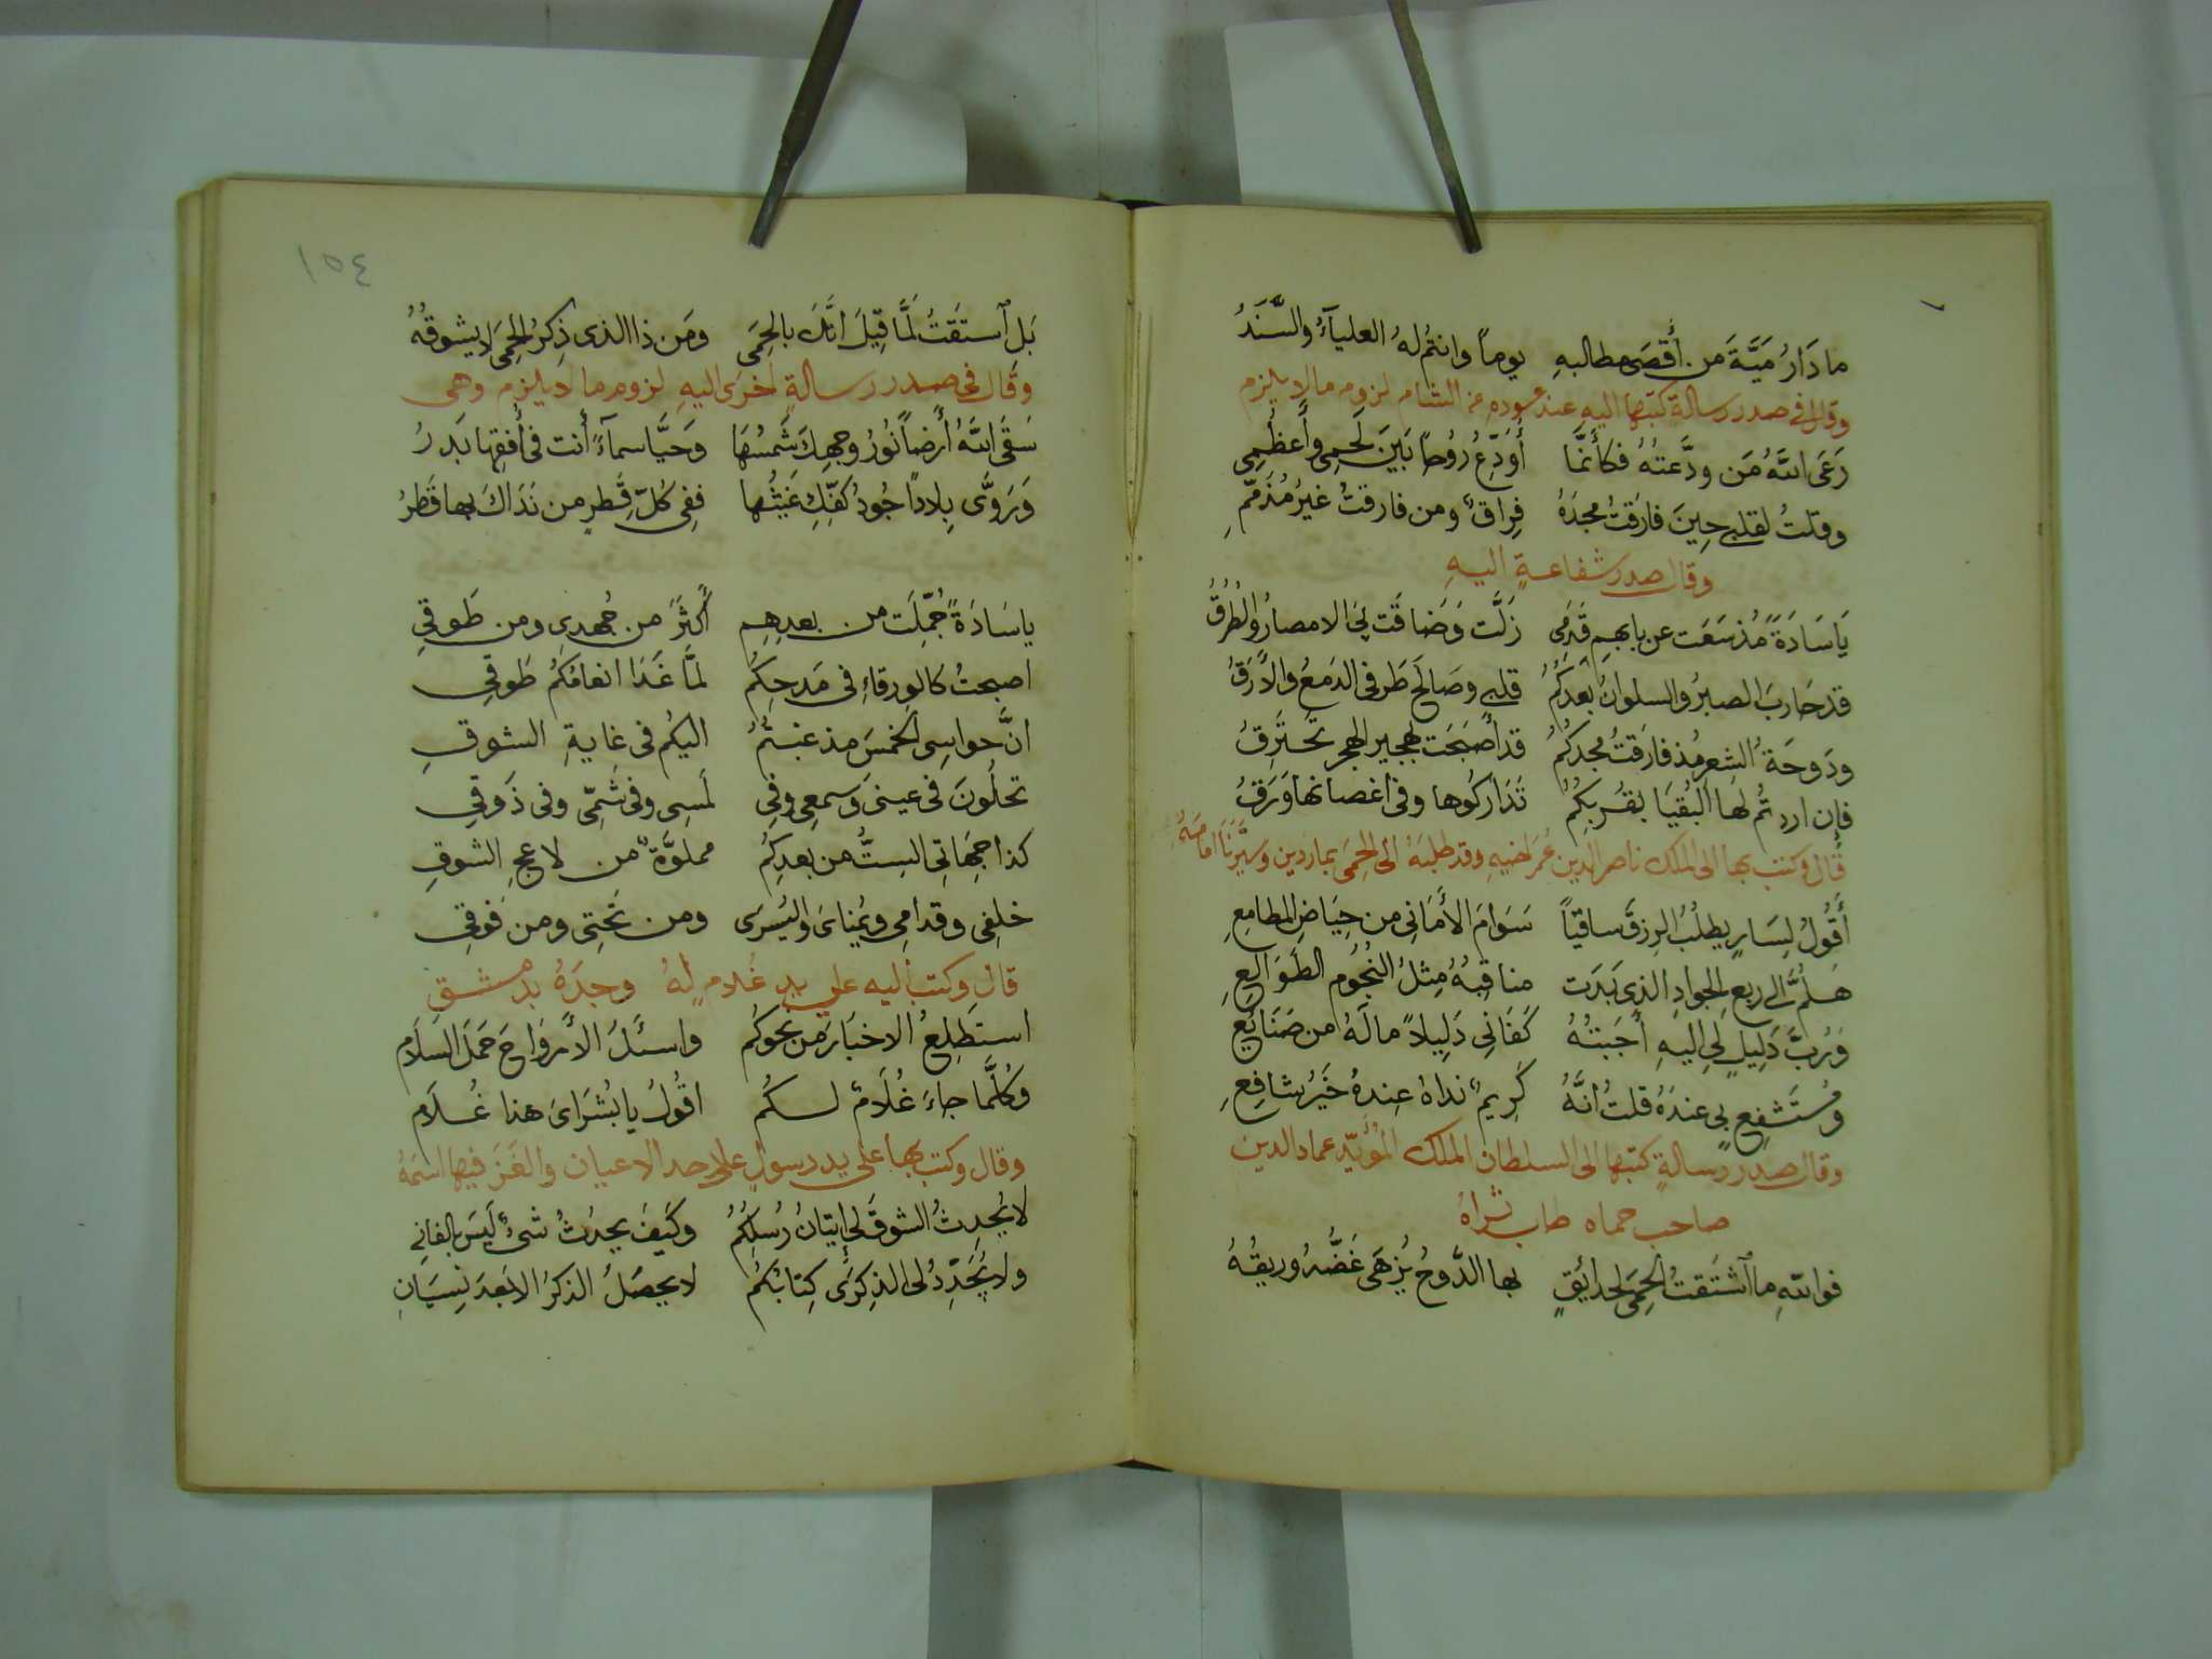 ما دَارُ مَيَّةَ من أَقْصَى مطالبهِ يوماً وانتمُ لهُ العلياءُ والسَّنَدُ
وقال في صدر رسالة كتبها اليه عند عوده من الشام لزوم ما لا يلزم
رَعَى اللهُ مَن ودَّعتُهُ فكأنَّما أُوَدِّعُ رُوحاً بَينَ لَحمِى وأَعظُمِى
وقلتُ لقلبى حِينَ فارَقتُ مجدَهُ فِراقٌ ومن فارقتُ غيرُ مُذَمَّمِ
وقال صدر شفاعةٍ اليهِ
يَا سَادَةً مُذ سَعَت عن بابهِم قَدَمِى زَلَّت وَضَاقَت بىَ الامصارُ والطُرُقُ
قد حَاربَ الصبرُ والسلوانُ بَعدَكُمُ قلبى وصَالَحَ طَرفى الدَمعُ والأَرَقُ
ودَوحَةُ الشِعرِ مُذ فارَقتُ مجدَكُمُ قد أَصبَحَت بهجيرِ الهجرِ تحتَرِقُ
فإن اردتُم لَها البُقيَا بقُربِكُمُ تَدَارَكُوها وفى اغصانها وَرَقُ
قال وكتب بها الى الملك ناصر الدين عُمَر اخيهِ وقد طلبَهُ الى الحِمَى بماردين
أَقُولُ لِسَارٍ يطلُبُ الرِزقَ ساقياً سَوَامَ الأَمَانِى من حِيَاضِ المطامِعِ
هَلُمَّ الى ربعِ الجوادِ الذى بَدَت مناقِبُهُ مِثلُ النُجُومِ الطَوَالِعِ
وَرُبَّ دَلِيلٍ لى اليهِ أَجَبتُهُ كَفَانِى دَلِيلاً مالَهُ من صَنَائِعِ
ومُستَشفِعٍ بى عندَهُ قلتُ انَّهُ كَرِيمٌ نداهُ عِندهُ خَيرُ شافِعِ
وقال صدر رسالةٍ كتبها الى السلطان الملك المُؤَيّد عماد الدين
صاحب حماه طاب ثراهُ
فواللهِ ما ٱشتَقتُ الحِمَى لحدائقٍ بها الدَّوحُ يُزهَى غَضُّهُ وريقُهُ
١٥٤
بَلِ ٱستَقتُ لَمَّا قِيلَ انَّكَ بالحِمَى ومَن ذا الذى ذِكرُ الحِمَى لا يشوقُهُ
وقال فى صدر رسالةٍ أخرى اليهِ لزوم ما لا يلزم وهى
سَقَى اللهُ أَرضاً نُورُ وجهِكَ شَمسُهَا وَحَيَّا سماءً أنت فى أُفقِها بَدرُ
وَرَوَّى بِلاداً جُودُ كفّكَ غَيثُها ففِى كُلّ قُطرٍ من نَدَاكَ بها قَطرُ
يا سَادَةً حُمِّلَت من بعدِهِم أَكثَرَ من جُهدِى ومن طَوقِى
اصبحتُ كالورقاءِ فى مَدحِكُم لمَّا غَدَا انعامُكُم طَوقِى
انَّ حواسِى الخَمسَ مذ غبتُمُ اليكُم فى غايةِ الشوقِ
تحلُونَ فى عينى وَسمعِى وفِى لَمسِى وفى شَمِّى وفى ذَوقِى
كذا جِهَاتِى السِتُّ من بعدِكُم مملوَّةٌ من لاعجِ الشوقِ
خلفِى وقدامِى ويُمنَاىَ واليُسرَى ومن تَحتِى ومن فَوقِى
قال وكتب اليه على يد غُلامٍ لهُ وجدَهُ بدمشق
استَطلِعُ الاخبَارَ من نحوِكُم واسئَلُ الأَروَاحَ حَملَ السَلَام
وكُلَّما جاءَ غُلَامٌ لكُم اقُولُ يا بُشَرَاىَ هذا غُلَام
وقال وكتب بها على يد رسول على احد الاعيان والغَزَ فيها اسمَهُ
لا يُحدِثُ الشوقَ لى إتيَانُ رُسلِكُمُ وكَيفَ يحدُثُ شىءٌ لَيسَ بالفانِى
ولا يُجَدِّدُ لى الذِكرَى كِتَابُكُمُ لا يحصُلُ الذكرُ الا بَعدَ نِسيَانِ